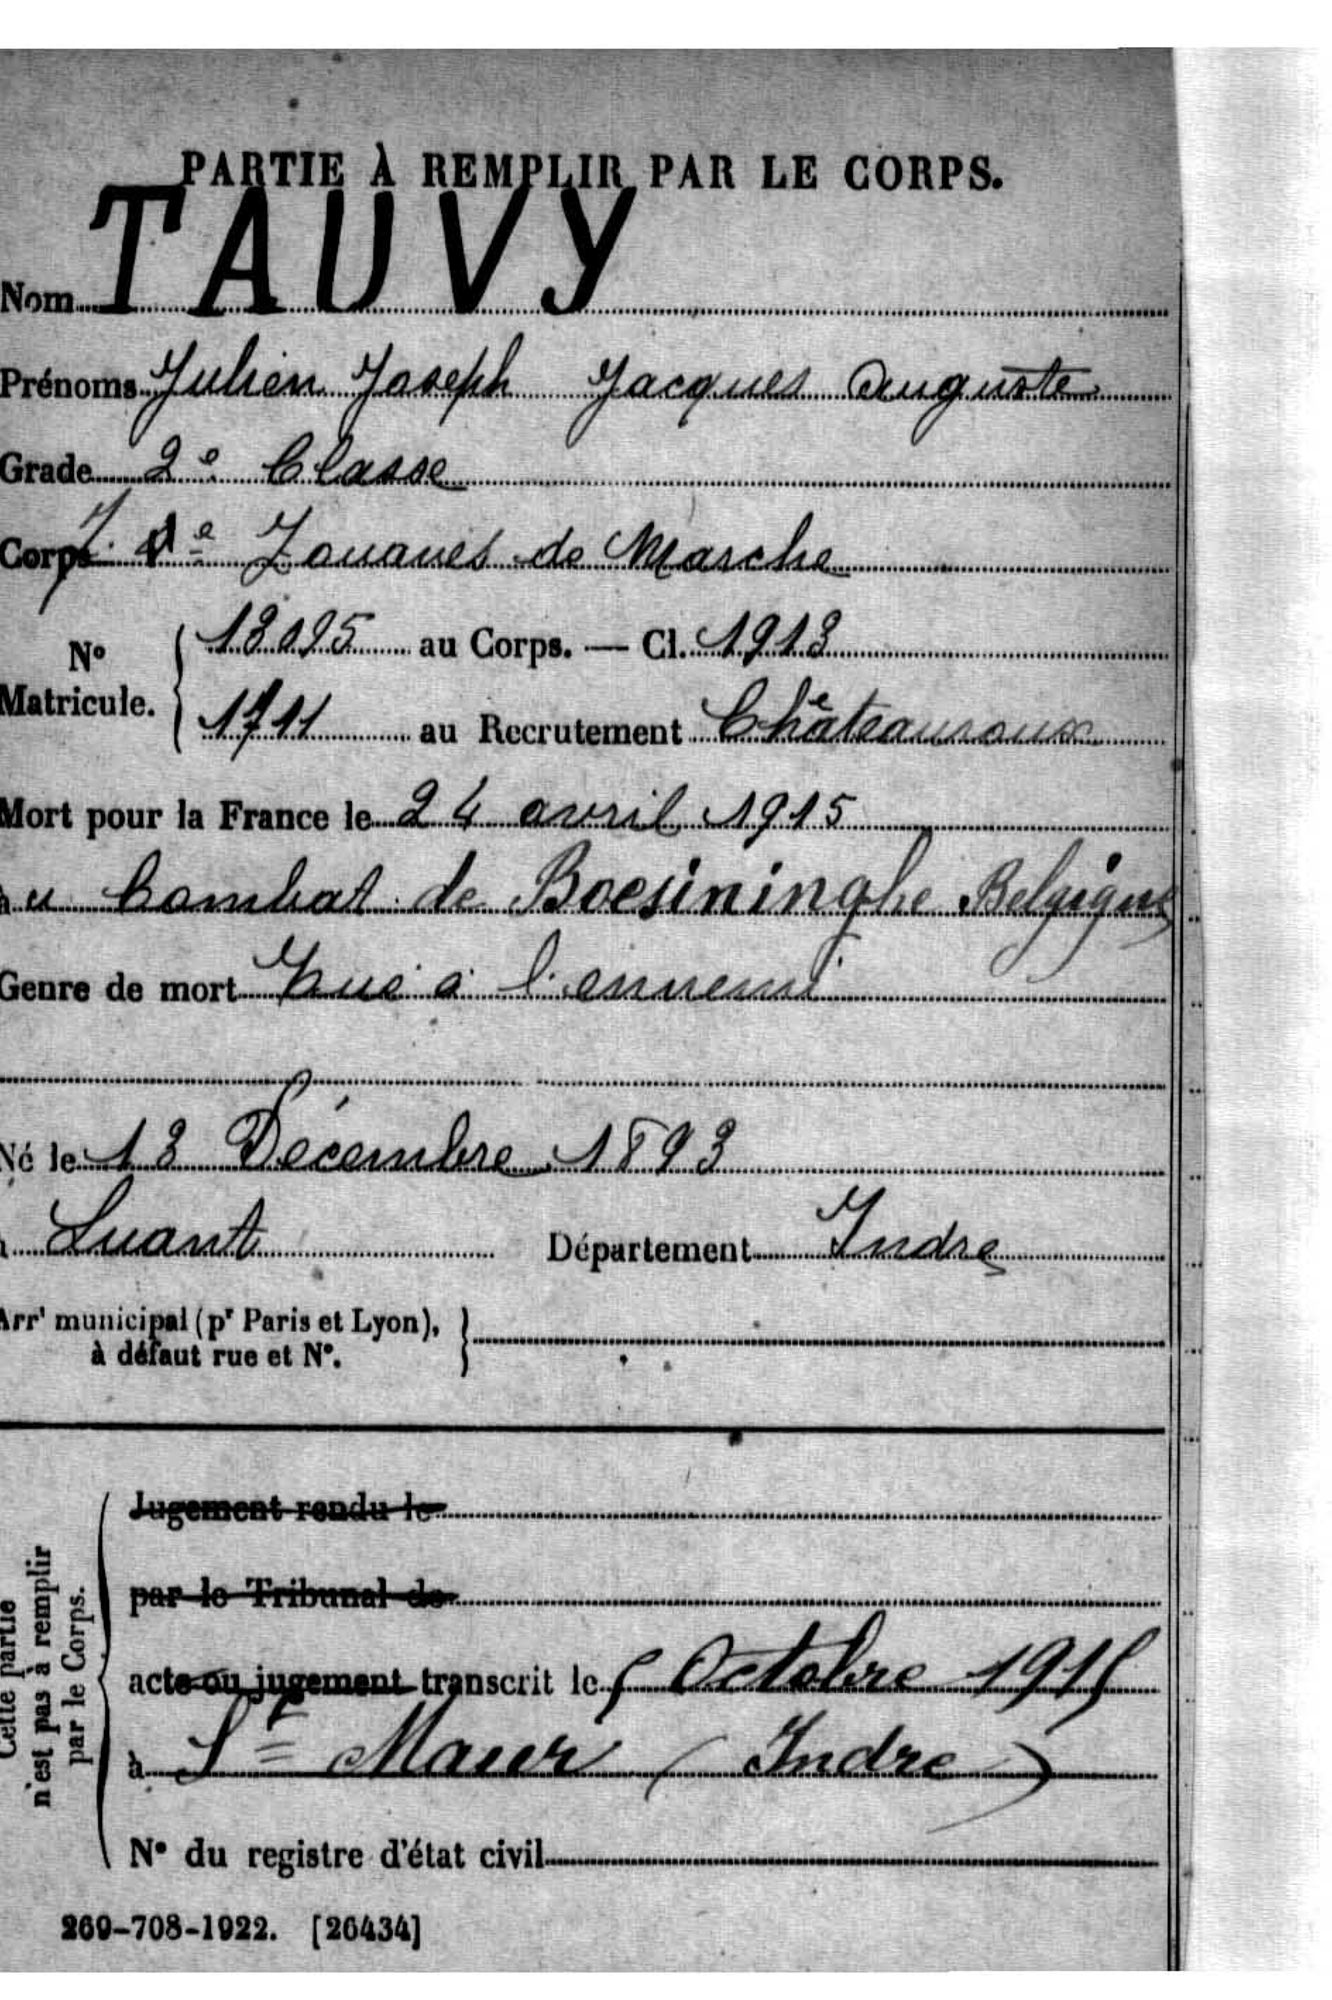 PARTIE À REMPLIR PAR LE CORPS.
Nom TAUVY
Prénoms Julien Joseph Jacques Auguste
Grade 2e Classe
Corps 7e Zouaves de Marche
No Matricule. { 13095 au Corps. — Cl. 1913
1711 au Recrutement Châteauroux
Mort pour la France le 24 avril 1915
au Combat de Boesininghe Belgique
Genre de mort Tué à l'ennemi
Né le 13 Décembre 1893
à Luant Département Indre
Arrt municipal (pr Paris et Lyon), à défaut rue et No. }
Cette partie n'est pas à remplir par le Corps.
Jugement rendu le
par le Tribunal de
acte ou jugement transcrit le 5 Octobre 1915
à St Maur (Indre)
No du registre d'état civil
269-708-1922. [26434]